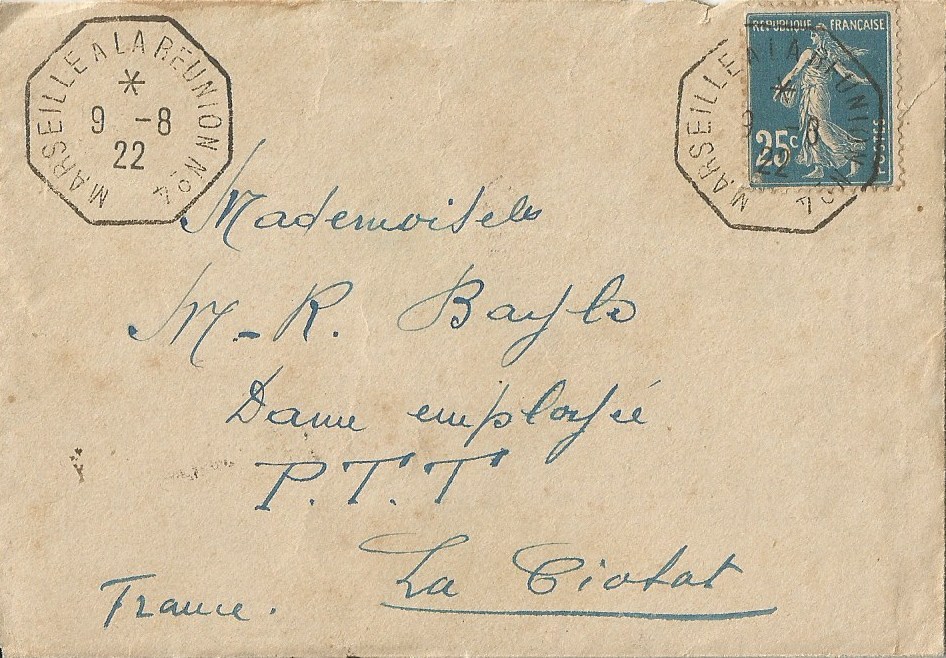 MARSEILLE A LA REUNION Nº4
9 -8
22
REPUBLIQUE FRANÇAISE
25c
POSTES
MARSEILLE A LA REUNION Nº4
9 -8
22
Mademoiselle
M-R. Bayle
Dame employée
P.T.T
La Ciotat
France.